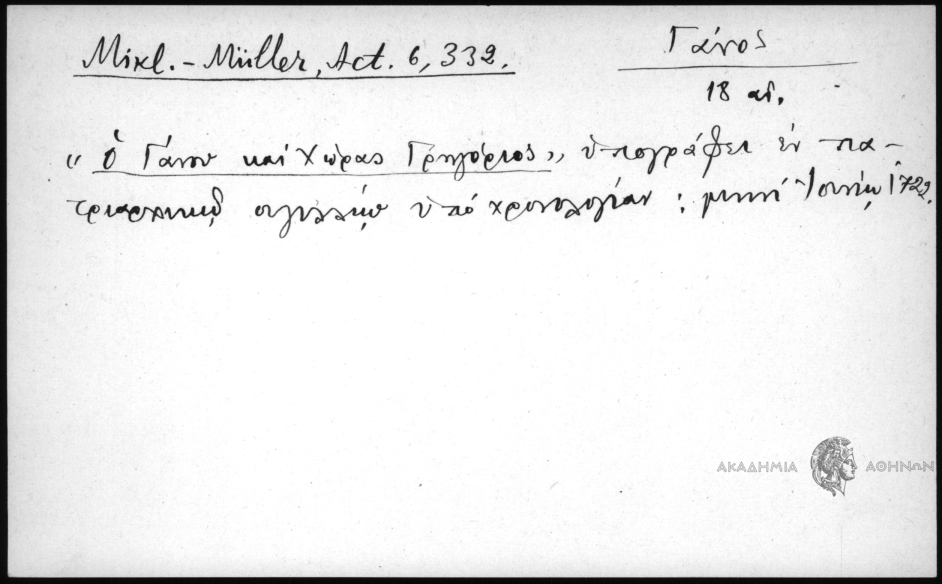 Mikl. - Müller, Act. 6, 332.
Γάνος
18 αἰ.
« Ὁ Γάνου καὶ Χώρας Γρηγόριος » ὑπογράφει ἐν πα-
τριαρχικῷ σιγιλλίῳ ὑπὸ χρονολογίαν : μηνὶ Ἰουνίῳ 1722.
ΑΚΑΔΗΜΙΑ ΑΘΗΝΩΝ